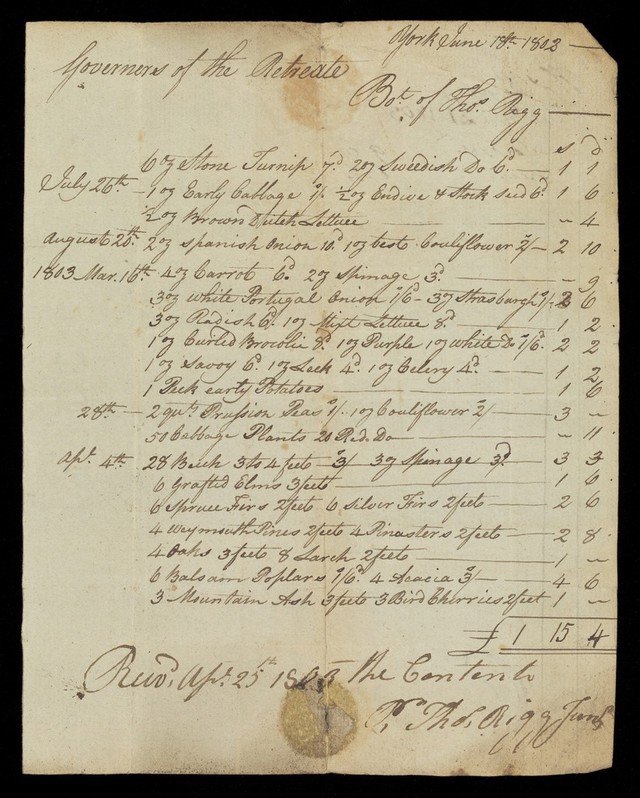 York June 18th 1802
Governers of the Retreate
Bot. of Thos. Rigg
s d
6 oz Stone Turnip 7d 2 oz Sweedish Do 6d. — 1 1
July 26th — 1 oz Early Cabbage 1/. ½ oz Endive & Stock seed 6d. 1 6
½ oz Brown Dutch Lettuce — " 4
August 20th. 2 oz Spanish Onion 10d. 1 oz best Couliflower 2/ — 2 10
1803 Mar. 16th. 4 oz Carrot 6d. 2 oz Spinage 3d. — " 9
3 oz White Portugal Onion 1/6 — 3 oz Strasburgh 1/. 2 6
3 oz Radish 6d. 1 oz Mixt Lettuce 8d. — 1 2
1 oz Curled Brocolie 8d. 1 oz Purple 1 oz White Do 1/6d. 2 2
1 oz Savoy 6d. 1 oz Leek 4d. 1 oz Celery 4d. — 1 2
1 Peck early Potatoes — 1 6
28th — 2 quts Prussion Peas 1/. 1 oz Couliflower 2/ — 3 "
50 Cabbage Plants 20 Red. Do — " 11
Apl. 4th. 28 Beech 3 to 4 feets — 3/ 3 oz Spinage 3d. 3 3
6 Grafted Elms 3 feets — 1 6
6 Spruce Firs 2 feets 6 Silver Firs 2 feets — 2 6
4 Weymouth Pines 2 feets 4 Pinasters 2 feets — 2 8
4 Oaks 3 feets 8 Larch 2 feets — 1 "
6 Balsam Poplars 1/6d. 4 Acacia 3/ — 4 6
3 Mountain Ash 3 feets 3 Bird Cherries 2 feet 1 "
£ 1 15 4
Recvd. Apl. 25th 1803 the Contents
Pr. Thos. Rigg Junr.